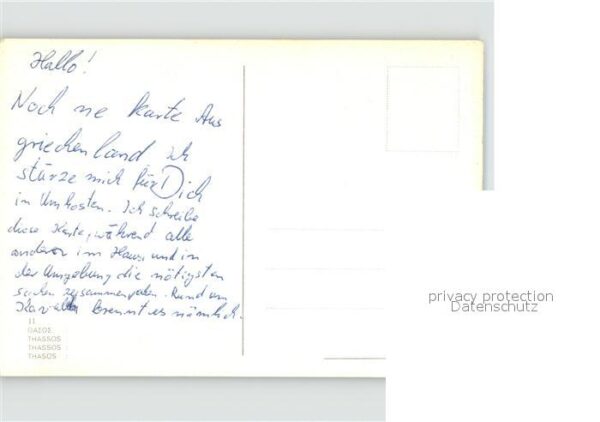 Hallo!
Noch ne Karte Aus
griechenland ich
stürze mich für Dich
in Unkosten. Ich schreibe
diese Karte, während alle
anderen im Haus und in
der Umgebung die nötigsten
sachen zusammenpacken. Rund um
Kavalla brennt es nämlich.
11
ΘΑΣΟΣ
THASSOS
THASSOS :
THASOS :
privacy protection
Datenschutz